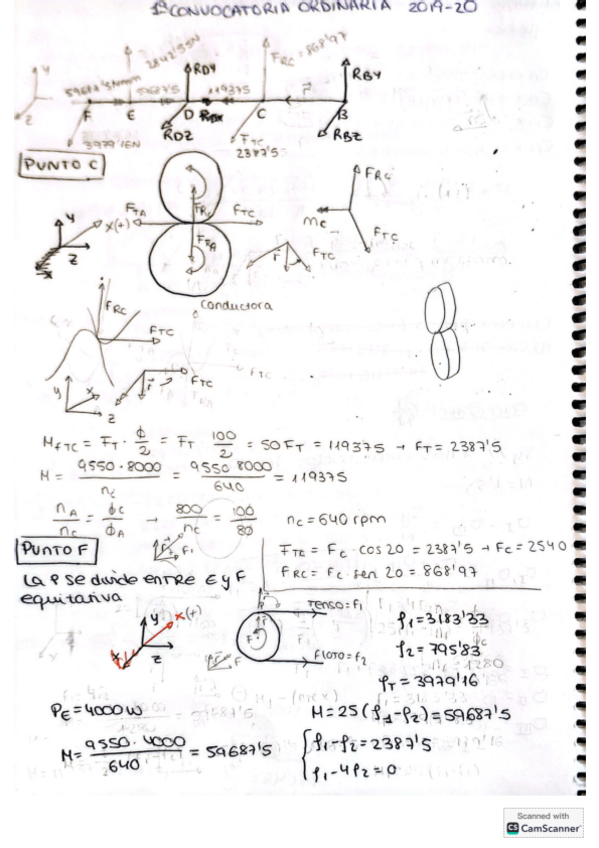 1ª CONVOCATORIA ORDINARIA 2019-20
2842'55N
FRC = 868'97
RDY
RBY
59687'5Nmm
59687'5
119375
r
Y
Z
F
E
D
C
B
3979'16N
RDZ
FTC
2387'5
RBZ
PUNTO C
FTA
FRC
FTC
FTA
y
x(+)
z
FRC
mc
FTC
r
FTC
Conductora
FRC
FTC
y
x
z
r
FTC
MfTC = FT · φ/2 = FT 100/2 = 50FT = 119375 → FT = 2387'5
M = 9550·8000/nc = 9550·8000/640 = 119375
nA/nc = φC/φA   800/nc = 100/80   nc = 640 rpm
PUNTO F
FTC = FC · cos 20 = 2387'5 → FC = 2540
FRC = FC · sen 20 = 868'97
La P se divide entre E y F
equitativa
Y
x(+)
z
x
F
r F
TENSO = F1
FLOJO = f2
f1 = 3183'33
f2 = 795'83
fT = 3979'16
PE = 4000W
M = 25 (f1 - f2) = 59687'5
M = 9550·4000/640 = 59687'5
f1 - f2 = 2387'5
f1 - 4f2 = 0
Scanned with
CS CamScanner